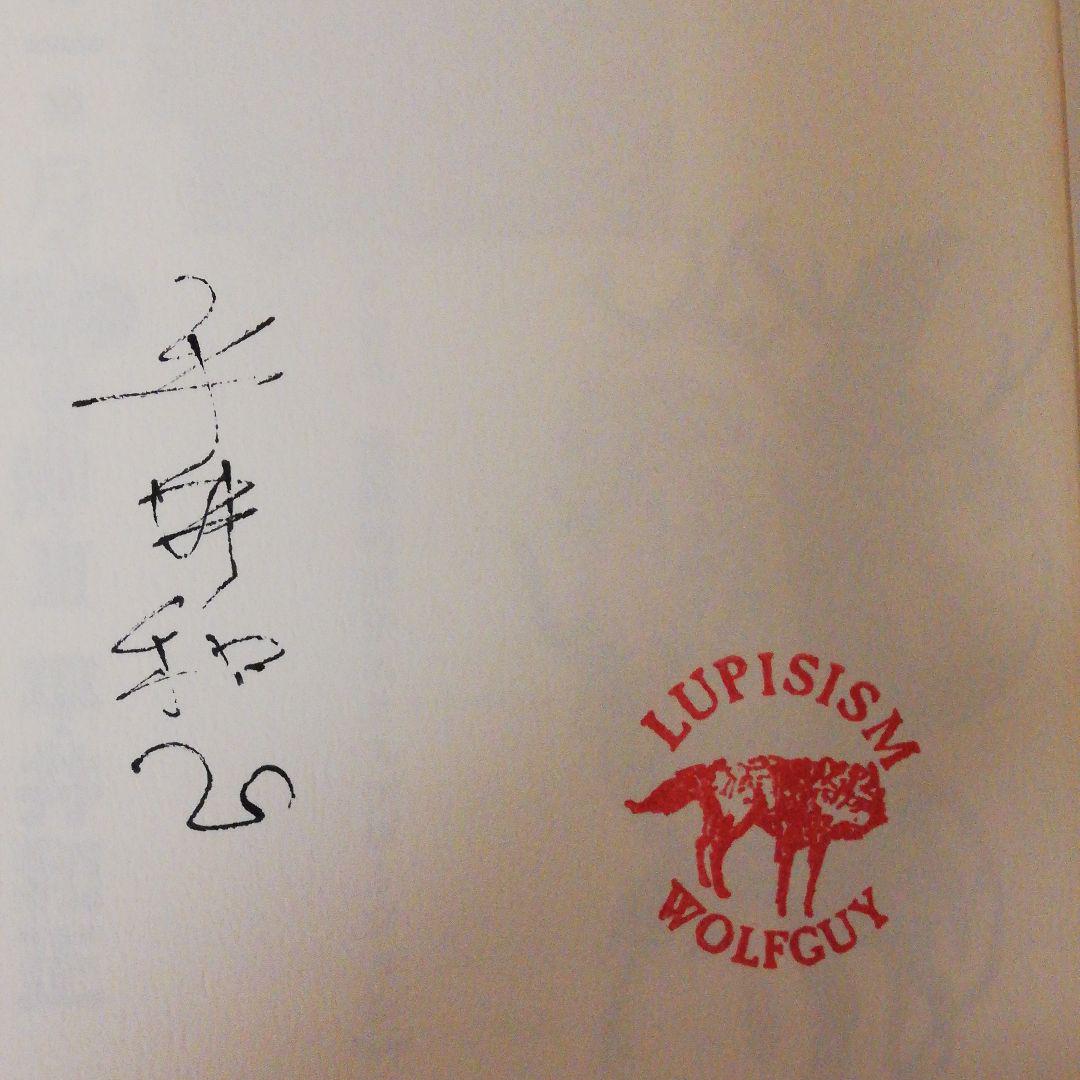 平井和正
LUPISISM
WOLFGUY